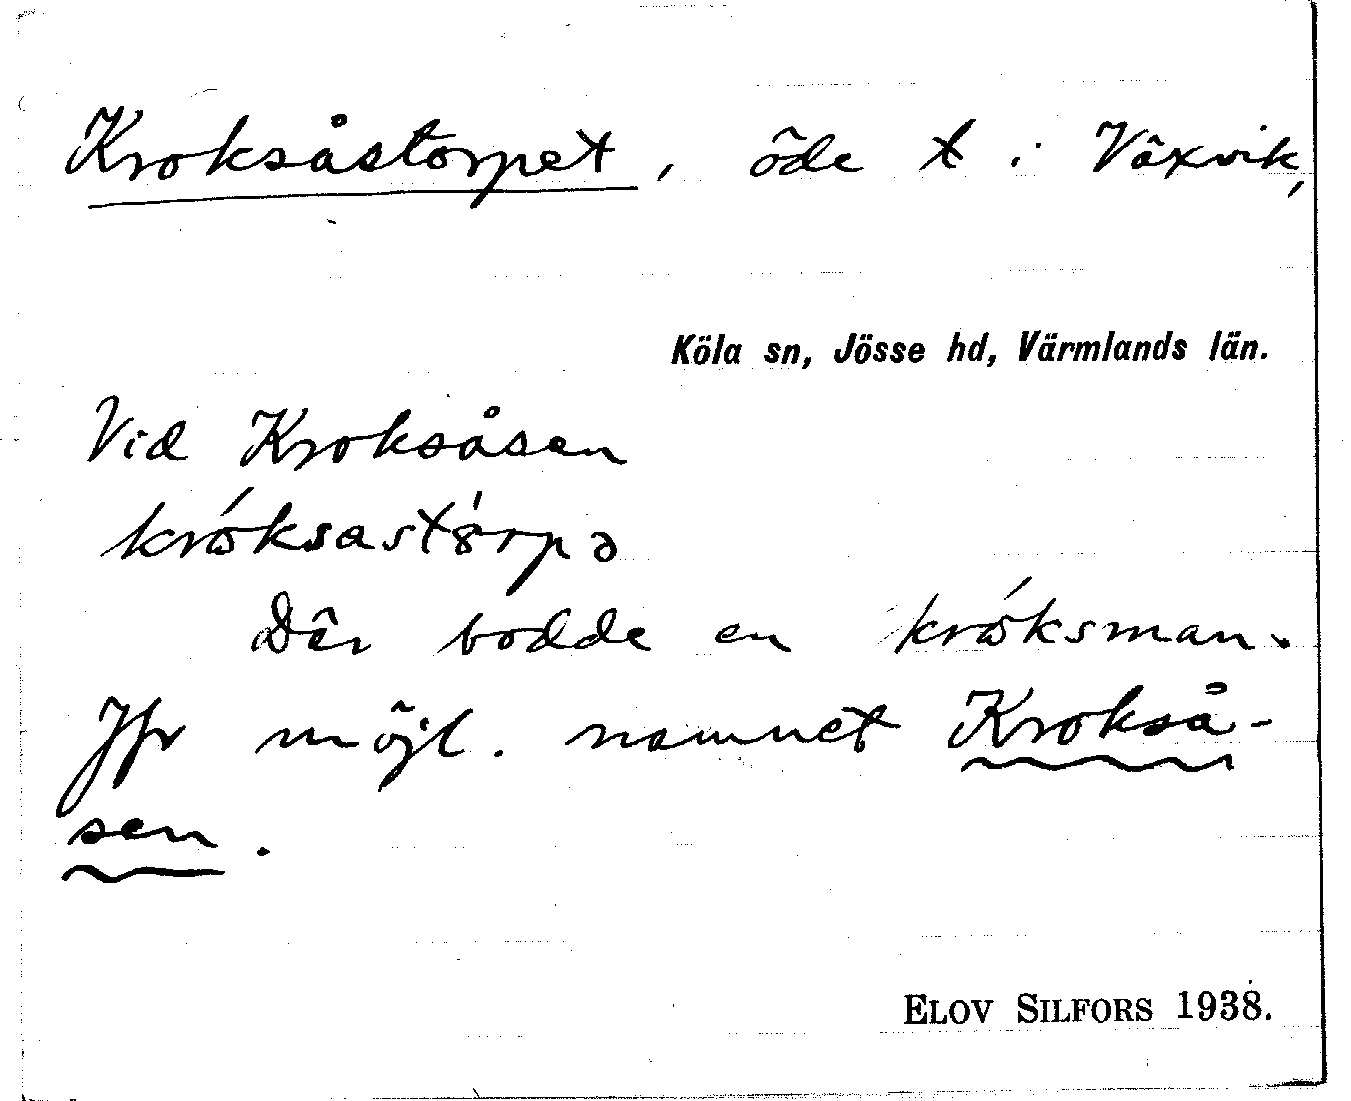 Kroksåstorpet, öde t i Växvik,
Köla sn, Jösse hd, Värmlands län.
Vid Kroksåsen
króksastórpə
Där bodde en króksman.
Jfr möjl. namnet Krokså-
sen.
ELOV SILFORS 1938.